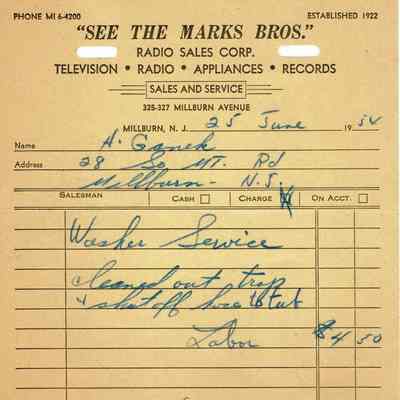 PHONE MI 6-4200 ESTABLISHED 1922
"SEE THE MARKS BROS."
RADIO SALES CORP.
TELEVISION • RADIO • APPLIANCES • RECORDS
SALES AND SERVICE
325-327 MILLBURN AVENUE
MILLBURN, N. J. 25 June 1954
Name A. Ganek
Address 28 So MT. Rd
Millburn - N.J.
SALESMAN CASH CHARGE X ON ACCT.
Washer Service
cleaned out trap
" shut off hose to tub
Labor $4 50